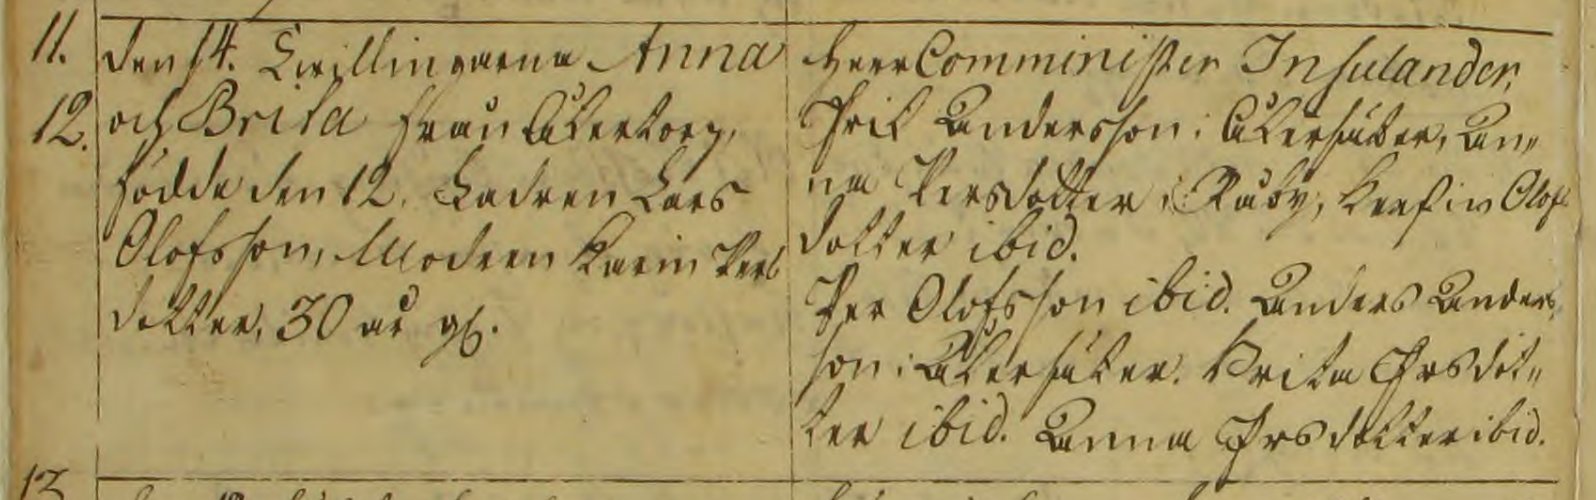 11. den 14. Twillingarna Anna
12. och Brita från Åkertorp,
födde den 12. Fadren Lars
Olofsson, Modren Karin Pers
dotter, 30 år gl.
Herr Comminister Insulander,
Eric Andersson i Åkersäter, An„
na Persdotter i Råby, Kerstin Olofs
dotter ibid.
Per Olofsson ibid. Anders Anders„
son i Åkersäter. Brita Ersdot„
ter ibid. Anna Ersdotter ibid.
13